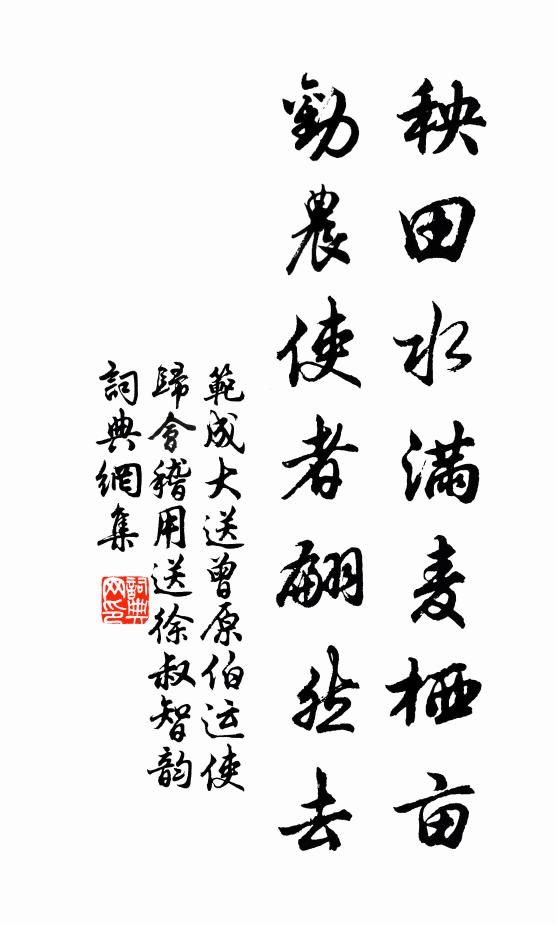 秧田水满麦栖亩
劝農使者翩然去
範成大送曾原伯运使
歸會稽用送徐叔智韵
詞典網集
詞典
网印